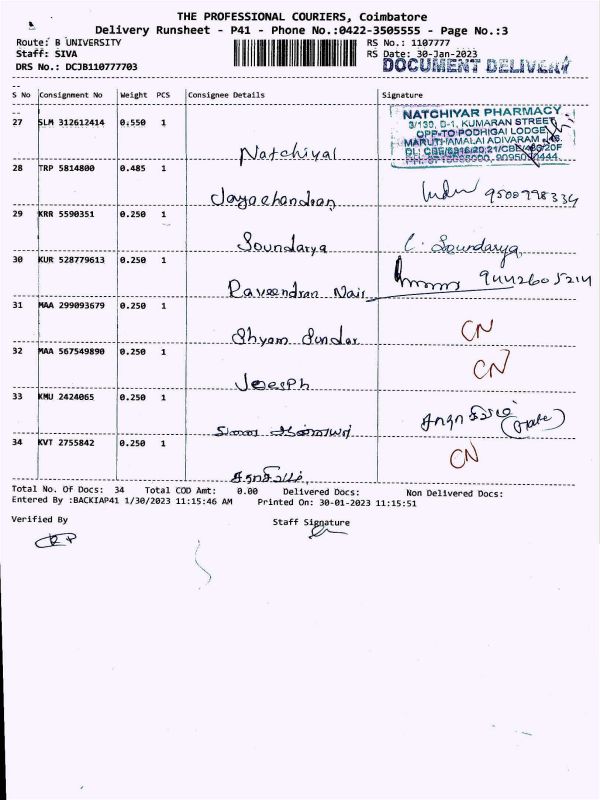 THE PROFESSIONAL COURIERS, Coimbatore
Delivery Runsheet - P41 - Phone No.:0422-3505555 - Page No.:3
Route: B UNIVERSITY
RS No.: 1107777
Staff: SIVA
RS Date: 30-Jan-2023
DRS No.: DCJB110777703
DOCUMENT DELIVERY
S No Consignment No Weight PCS Consignee Details Signature
27 SLM 312612414 0.550 1 Natchiyal
NATCHIYAR PHARMACY
3/130, D-1, KUMARAN STREET
OPP-TO PODHIGAI LODGE
MARUTHAMALAI ADIVARAM
28 TRP 5814800 0.485 1 Jayachandran 9500798334
29 KRR 5590351 0.250 1 Soundarya C. Soundarya
30 KUR 528779613 0.250 1 Raveendran Nair 9442605214
31 MAA 299093679 0.250 1 Shyam Sundar CN
32 MAA 567549890 0.250 1 Joesph CN
33 KMU 2424065 0.250 1
34 KVT 2755842 0.250 1 CN
Total No. Of Docs: 34 Total COD Amt: 0.00 Delivered Docs: Non Delivered Docs:
Entered By :BACKIAP41 1/30/2023 11:15:46 AM Printed On: 30-01-2023 11:15:51
Verified By Staff Signature